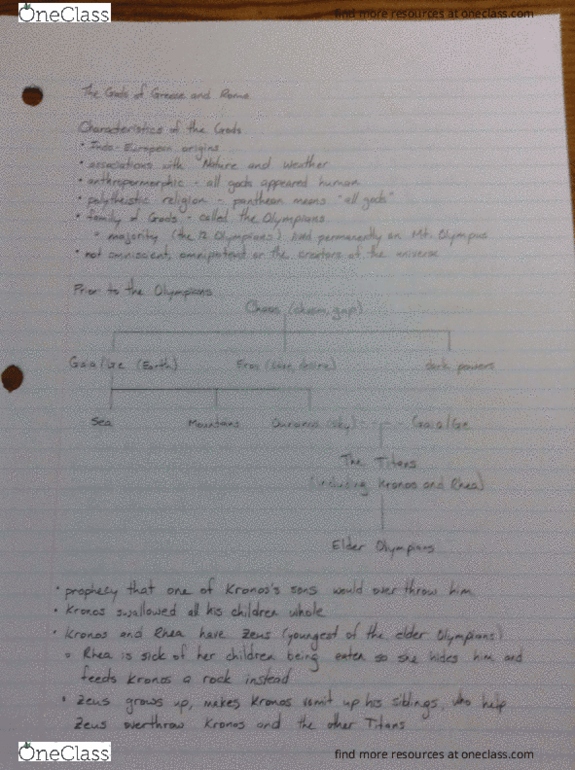 OneClass
find more resources at oneclass.com
The Gods of Greece and Rome
Characteristics of the Gods
• Indo-European origins
• associations with Nature and Weather
• anthropormorphic - all gods appeared human
• polytheistic religion - pantheon means "all gods"
• family of Gods - called the Olympians
° majority (the 12 Olympians) lived permanently on Mt. Olympus
• not omniscient, omnipotent or the creators of the universe
Prior to the Olympians
Chaos (chasm, gap)
Gaia/Ge (Earth) Eros (love, desire) dark powers
Sea Mountains Ouranos (sky) Gaia/Ge
The Titans
(including Kronos and Rhea)
Elder Olympians
• prophecy that one of Kronos's sons would over throw him
• Kronos swallowed all his children whole
• Kronos and Rhea have Zeus (youngest of the elder Olympians)
° Rhea is sick of her children being eaten so she hides him and
feeds Kronos a rock instead
• Zeus grows up, makes Kronos vomit up his siblings, who help
Zeus overthrow Kronos and the other Titans
OneClass
find more resources at oneclass.com